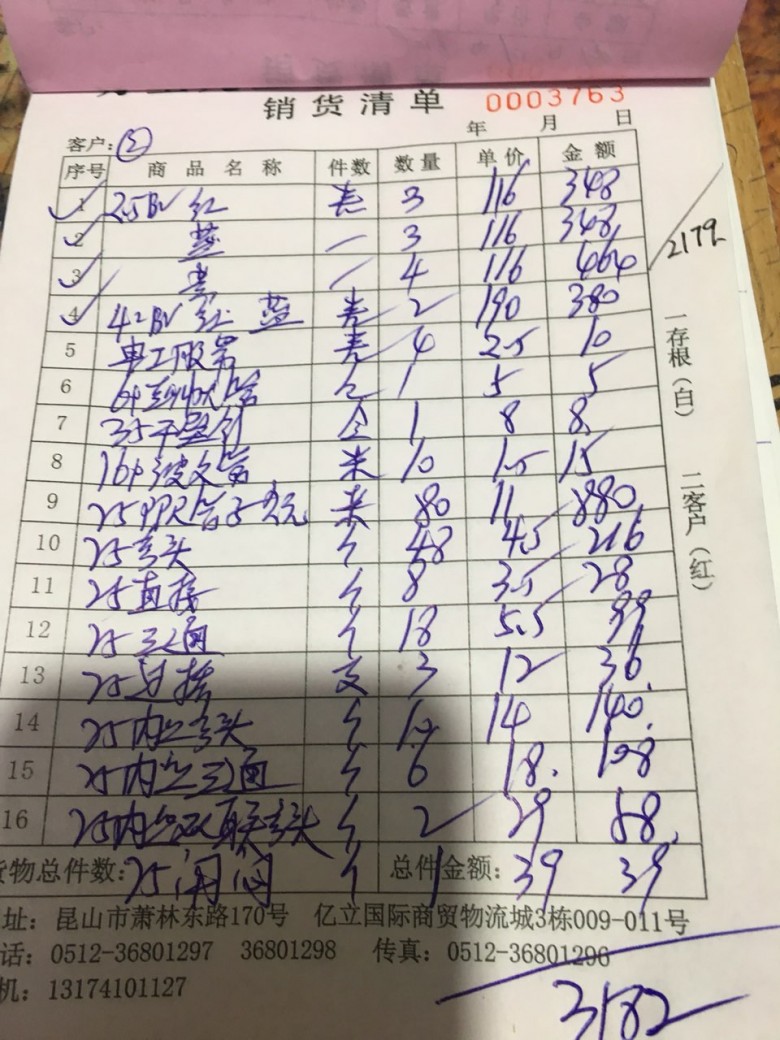 销货清单 0003763
客户: ② 年 月 日
序号 商品名称 件数 数量 单价 金额
1 2.5BV 红 卷 3 116 348
2 蓝 一 3 116 348
3 一 4 116 464
4 4BV 红 蓝 卷 2 190 380
5 卷 4 2.5 10
6 个 1 5 5
7 35干壁钉 盒 1 8 8
8 16#波文管 米 10 1.5 15
9 25PPR管 米 80 11 880
10 25弯头 个 48 4.5 216
11 25直接 个 8 3.5 28
12 25三通 个 18 5.5 99
13 25过桥 支 3 12 36
14 25内丝弯头 个 10 14 140
15 25内丝三通 个 6 18 108
16 25内丝双联弯头 个 2 29 58
货物总件数: 25闸阀 个 1 总件金额: 39 39
2179
一存根(白) 二客户(红)
址: 昆山市萧林东路170号 亿立国际商贸物流城3栋009-011号
话: 0512-36801297 36801298 传真: 0512-36801296
机: 13174101127
3182